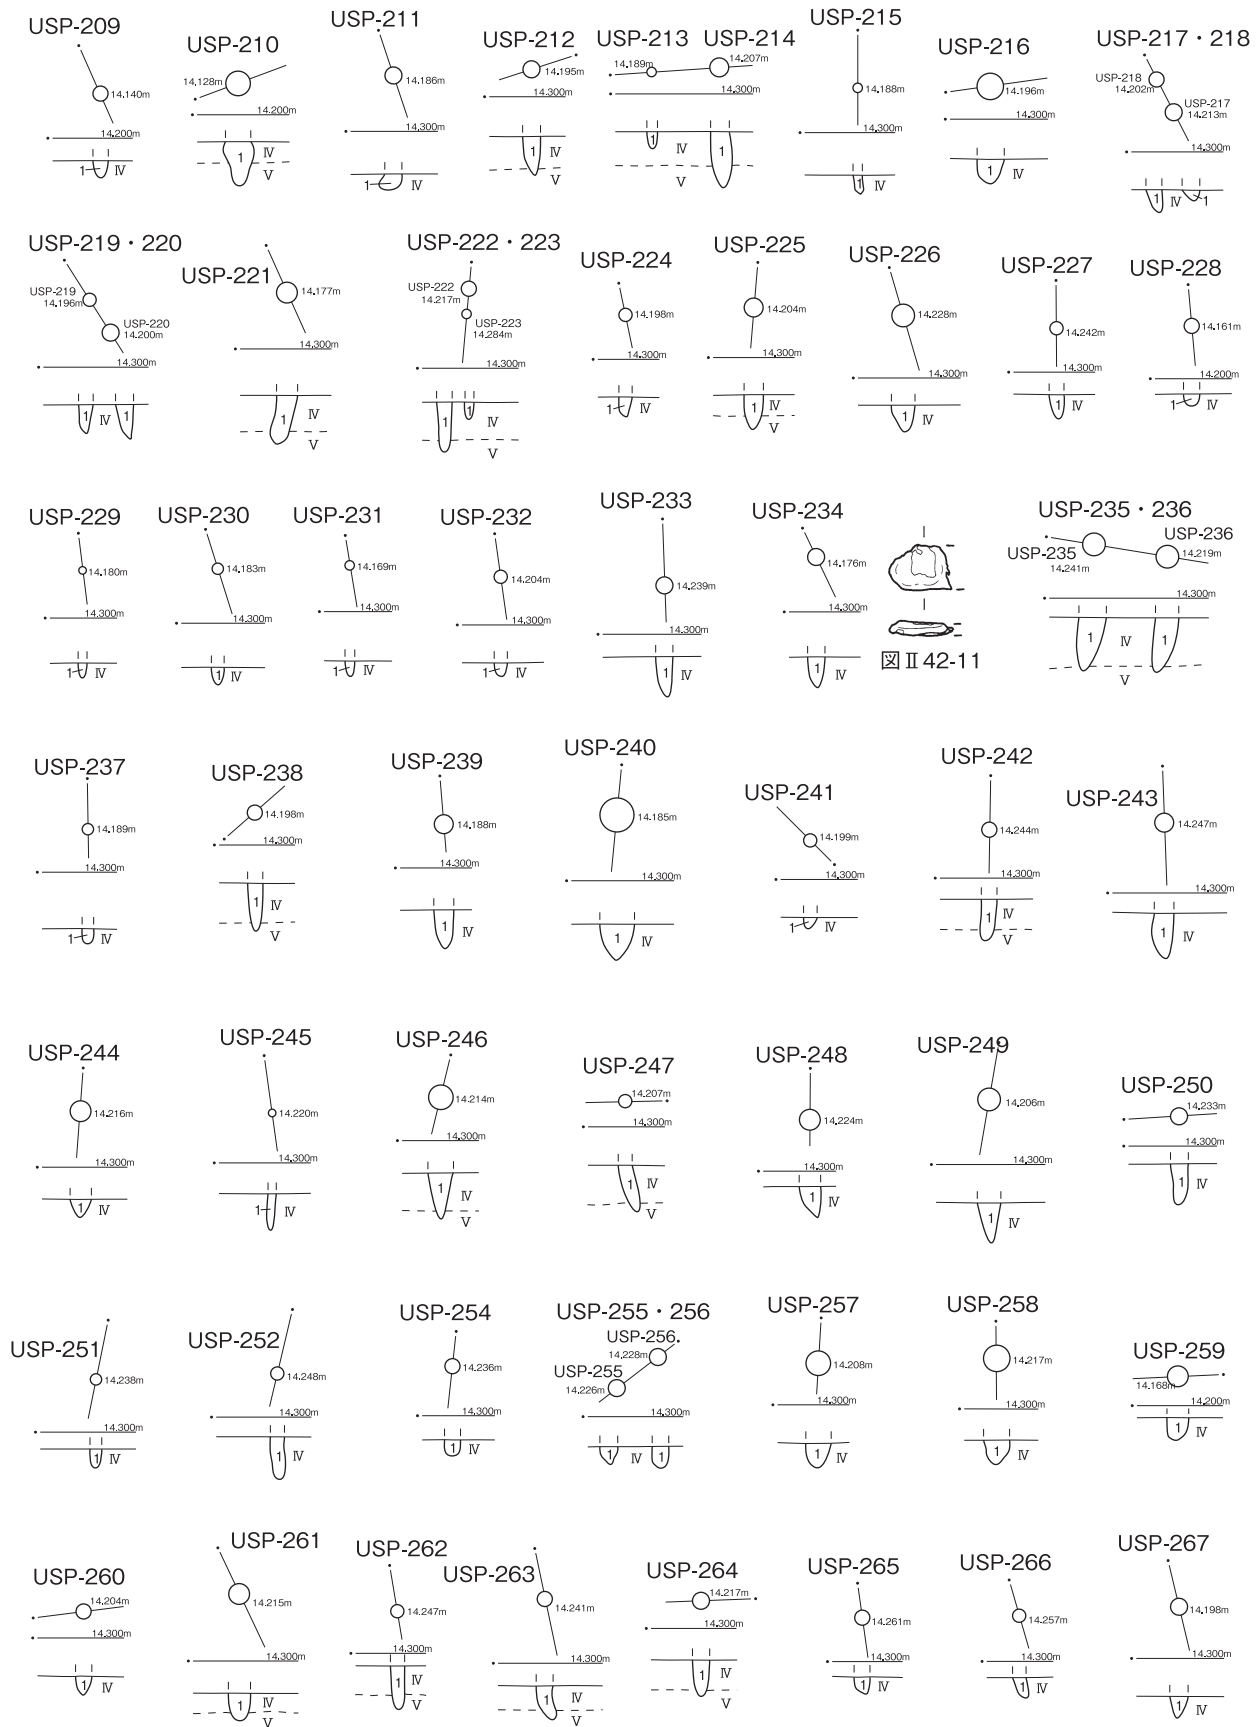 USP-209
14.140m
14.200m
1 IV
USP-210
14.128m
14.200m
1 IV
V
USP-211
14.186m
14.300m
1 IV
USP-212
14.195m
14.300m
1 IV
V
USP-213 USP-214
14.189m 14.207m
14.300m
1 IV 1
V
USP-215
14.188m
14.300m
1 IV
USP-216
14.196m
14.300m
1 IV
USP-217・218
USP-218
14.202m
USP-217
14.213m
14.300m
1 IV 1
USP-219・220
USP-219
14.196m
USP-220
14.200m
14.300m
1 IV 1
USP-221
14.177m
14.300m
1 IV
V
USP-222・223
USP-222
14.217m
USP-223
14.284m
14.300m
1 1 IV
V
USP-224
14.198m
14.300m
1 IV
USP-225
14.204m
14.300m
1 IV
V
USP-226
14.228m
14.300m
1 IV
USP-227
14.242m
14.300m
1 IV
USP-228
14.161m
14.200m
1 IV
USP-229
14.180m
14.300m
1 IV
USP-230
14.183m
14.300m
1 IV
USP-231
14.169m
14.300m
1 IV
USP-232
14.204m
14.300m
1 IV
USP-233
14.239m
14.300m
1 IV
USP-234
14.176m
14.300m
1 IV
図Ⅱ42-11
USP-235・236
USP-235
14.241m
USP-236
14.219m
14.300m
1 IV 1
V
USP-237
14.189m
14.300m
1 IV
USP-238
14.198m
14.300m
1 IV
V
USP-239
14.188m
14.300m
1 IV
USP-240
14.185m
14.300m
1 IV
USP-241
14.199m
14.300m
1 IV
USP-242
14.244m
14.300m
1 IV
V
USP-243
14.247m
14.300m
1 IV
USP-244
14.216m
14.300m
1 IV
USP-245
14.220m
14.300m
1 IV
USP-246
14.214m
14.300m
1 IV
V
USP-247
14.207m
14.300m
1 IV
V
USP-248
14.224m
14.300m
1 IV
USP-249
14.206m
14.300m
1 IV
USP-250
14.233m
14.300m
1 IV
USP-251
14.238m
14.300m
1 IV
USP-252
14.248m
14.300m
1 IV
USP-254
14.236m
14.300m
1 IV
USP-255・256
USP-256
14.228m
USP-255
14.226m
14.300m
1 IV 1
USP-257
14.208m
14.300m
1 IV
USP-258
14.217m
14.300m
1 IV
USP-259
14.168m
14.200m
1 IV
USP-260
14.204m
14.300m
1 IV
USP-261
14.215m
14.300m
1 IV
V
USP-262
14.247m
14.300m
1 IV
V
USP-263
14.241m
14.300m
1 IV
V
USP-264
14.217m
14.300m
1 IV
V
USP-265
14.261m
14.300m
1 IV
USP-266
14.257m
14.300m
1 IV
USP-267
14.198m
14.300m
1 IV